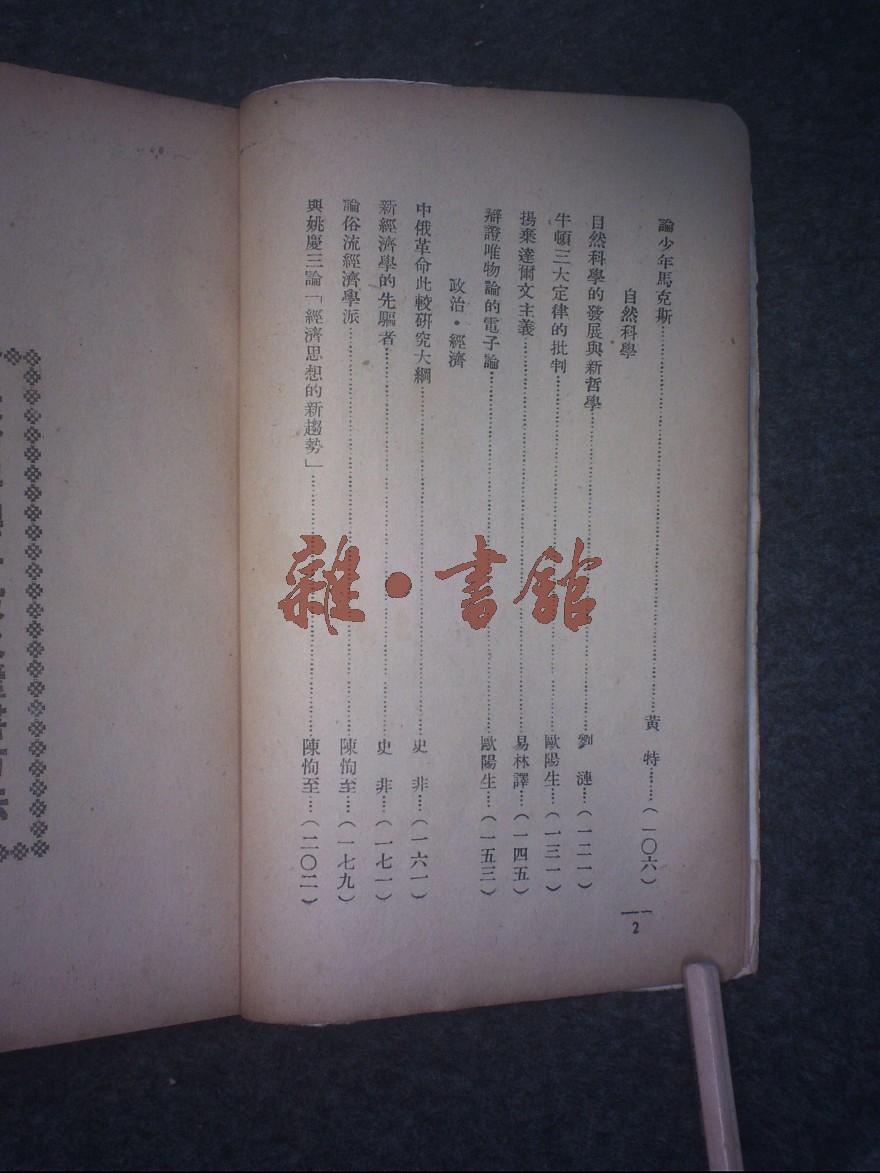 論少年馬克斯………黃　特……（一〇六）
自然科學
自然科學的發展與新哲學………劉　漣……（一二一）
牛頓三大定律的批判………歐陽生……（一三一）
揚棄達爾文主義………易林譯……（一四五）
辯證唯物論的電子論………歐陽生……（一五三）
政治・經濟
中俄革命此較研究大綱………史　非……（一六一）
新經濟學的先驅者………史　非……（一七一）
論俗流經濟學派………陳恂至……（一七九）
與姚慶三論「經濟思想的新趨勢」………陳恂至……（二〇二）
2
雜・書館